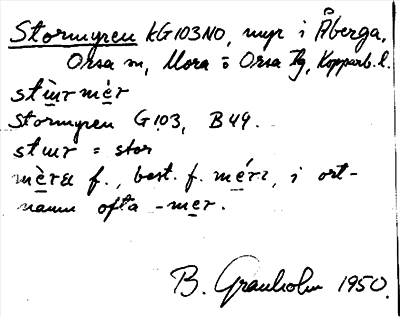 Stormyren KG103NO, myr i Åberga,
Orsa sn, Mora o Orsa tg, Kopparb. l.
stùrmèr
Stormyren G103, B49.
stur = stor
mèra f., best. f. mérı, i ort-
namn ofta -mer.
B. Granholm 1950.